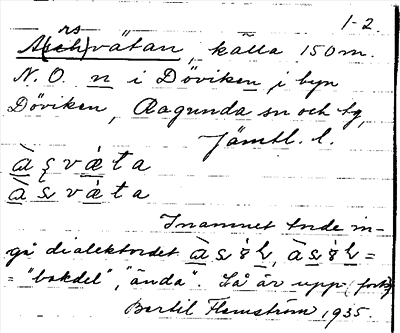 1-2.
rs
A(sch)vätan, källa 150 m.
N.O. n i Döviken, i byn
Döviken, Ragunda sn och tg,
Jämtl. l.
à ʂ v ǽ t a
à ʂ v ǽ t a
I namnet torde in-
gå dialektordet
= "bakdel", "ända". Så är upp (forts)
Bertil Flemström, 1935.